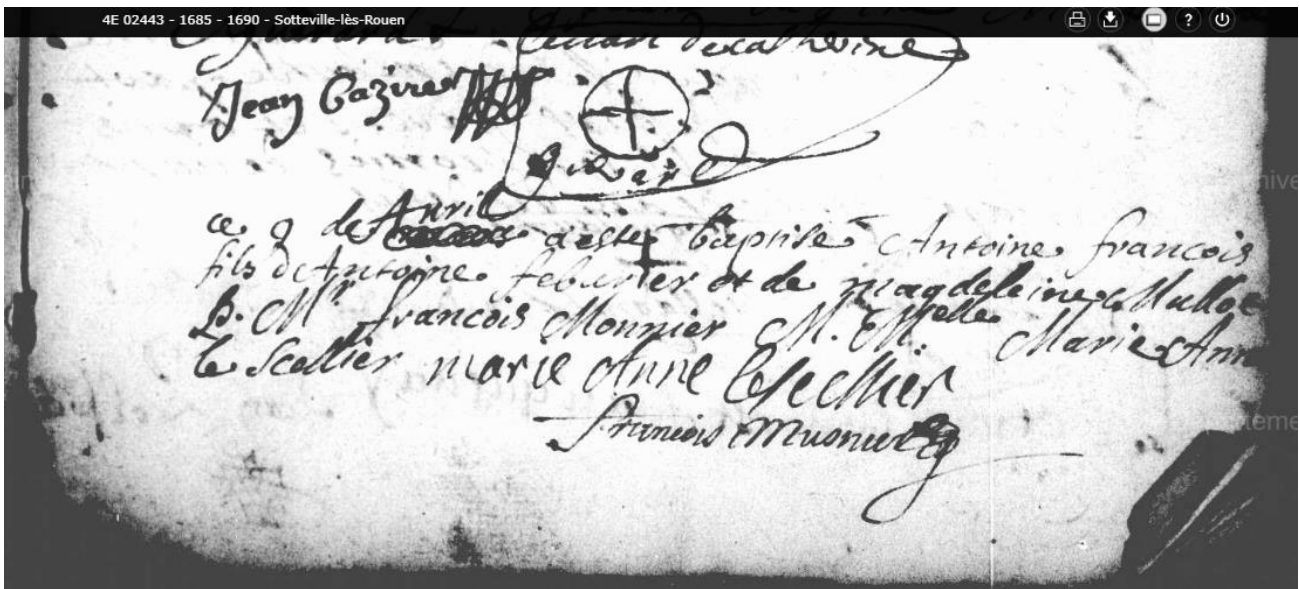 4E 02443 - 1685 - 1690 - Sotteville-lès-Rouen
de catherine
Jean Cazire
ce 9 de Avril a este baptisé Antoine francois
fils d'Antoine febvrier et de magdeleine Mullot
P. Mr francois Monnier M. Melle Marie Ann
le Scellier marie Anne le sellier
francois Musnier